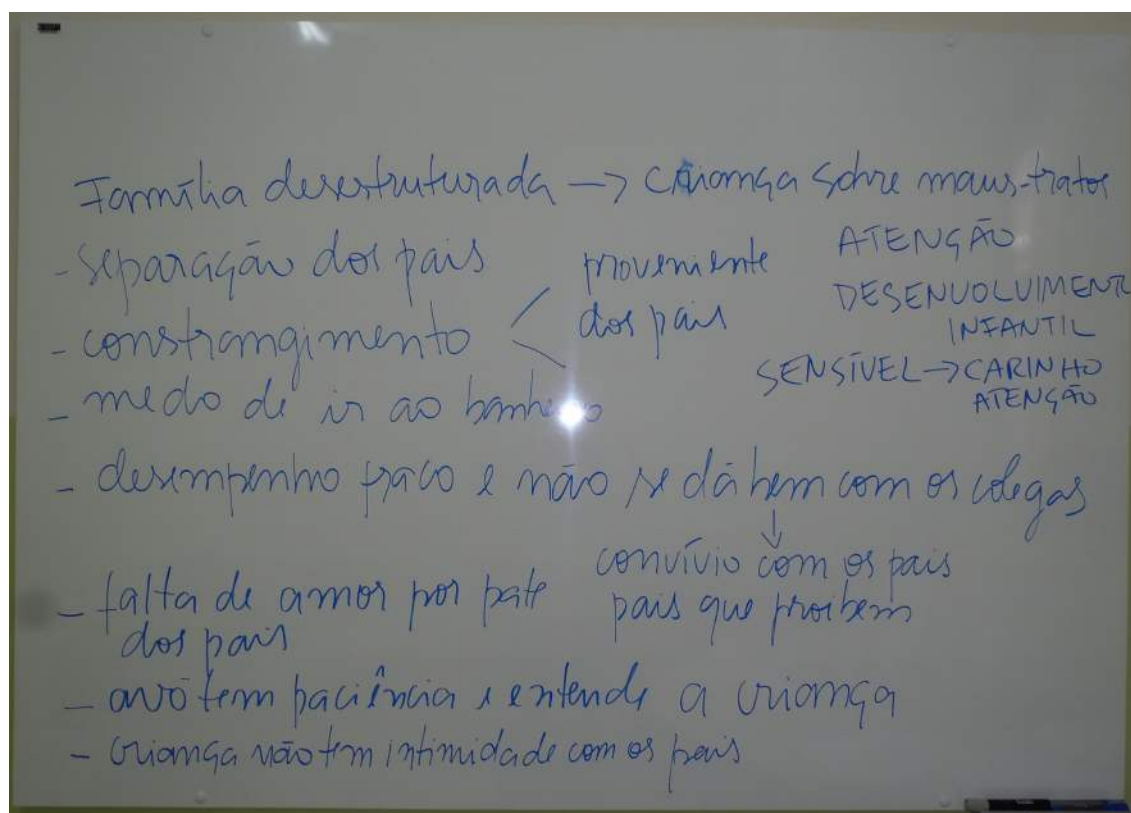 Família desestruturada → criança sobre maus-tratos
- separação dos pais
proveniente
dos pais
- constrangimento
- medo de ir ao banheiro
ATENÇÃO
DESENVOLVIMENTO
INFANTIL
SENSÍVEL → CARINHO
ATENÇÃO
- desempenho fraco e não se dá bem com os colegas
↓
convívio com os pais
pais que proibem
- falta de amor por pate
dos pais
- avó tem paciência e entende a criança
- criança não tem intimidade com os pais